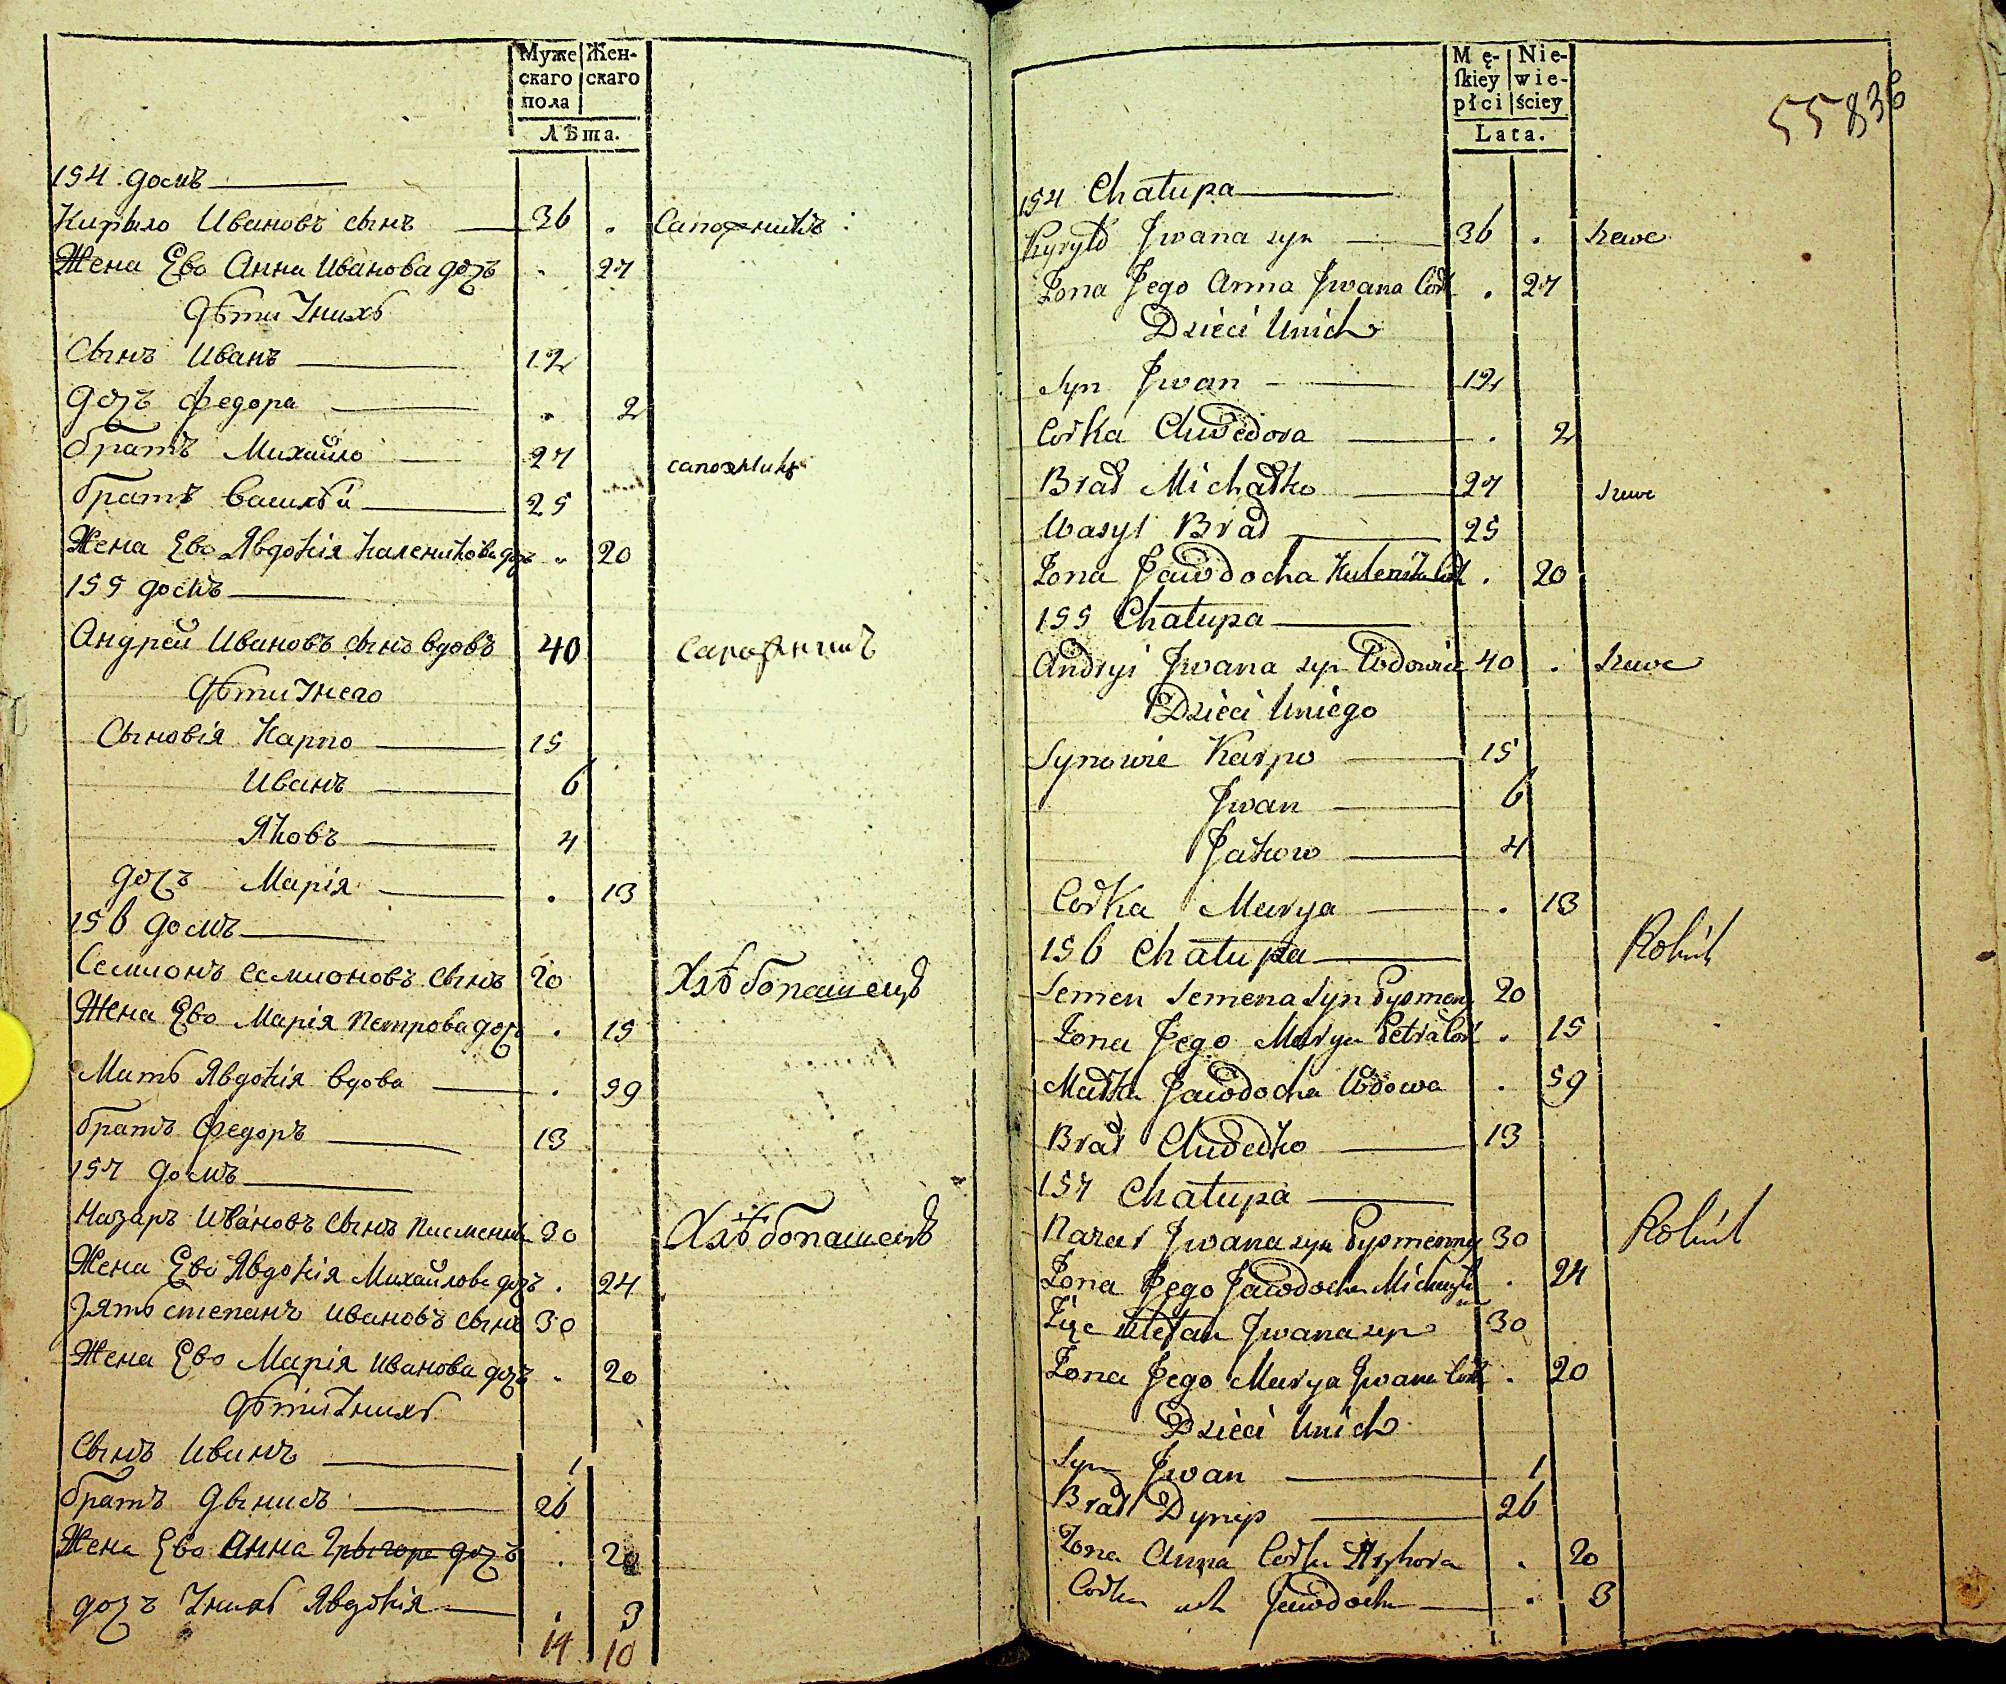 Муже Жен-
скаго скаго
пола
Лѣта.
154 домъ
Кирыло Ивановъ сынъ 36 . Сапожникъ
Жена Ево Анна Иванова дочь . 27
Дѣти Унихъ
Сынъ Иванъ 12
дочъ федора . 2
братъ Михайло 27 сапожникъ
братъ василѣй 25
Жена Ево Явдокія каленикова дочъ . 20
155 домъ
Андрей Ивановъ сынъ вдовъ 40 Сапожникъ
Дѣти Унего
Сыновія Карпо 15
Иванъ 6
Яковъ 4
дочъ Марія . 13
156 домъ
Семионъ семионовъ сынъ 20 Хлѣбопашецъ
Жена Ево Марія петрова дочъ . 15
Мать Явдокія вдова . 59
братъ Федоръ 13
157 домъ
Назаръ Ивановъ сынъ писменны 30 Хлѣбопашецъ
Жена Ево Явдокія Михайлова дочъ . 24
Зять степанъ ивановъ сынъ 30
Жена Ево Марія иванова дочъ . 20
Дѣти Унихъ
Сынъ Иванъ 1
братъ Дынисъ 26
Жена Ево Анна Грыгора дочъ . 20
дочъ Унихъ Явдокія . 3
14 10
Mę- Nie-
ſkiey wie-
płci ściey
Lata.
55836
154 Chałupa
Kyryło Jwana syn 36 . szewc
Żona Jego Anna Jwana Cor . 27
Dzieci Unich
Syn Jwan 12
Corka Chwedora . 2
Brat Michałko 27 szewc
Wasyl Brat 25
Żona Jawdocha . 20
155 Chałupa
Andryi Jwana syn Wdowiec 40 . szewc
Dzieci Uniego
Synowie Karpo 15
Jwan 6
Jakow 4
Corka Marya . 13
156 Chałupa Rolnik
Semen Semena Syn Pysmeny 20
Żona Jego Marya Petra Cor . 15
Matka Jawdocha Wdowa . 59
Brat Chwedko 13
157 Chałupa
Nazar Jwana syn Pysmenny 30 Rolnik
Żona Jego Jawdocha . 24
Zięc Stefan Jwana syn 30
Żona Jego Marya Jwana Cor . 20
Dzieci Unich
Syn Jwan 1
Brat Dynys 26
Żona Anna Corka . 20
Corka ich Jawdocha . 3